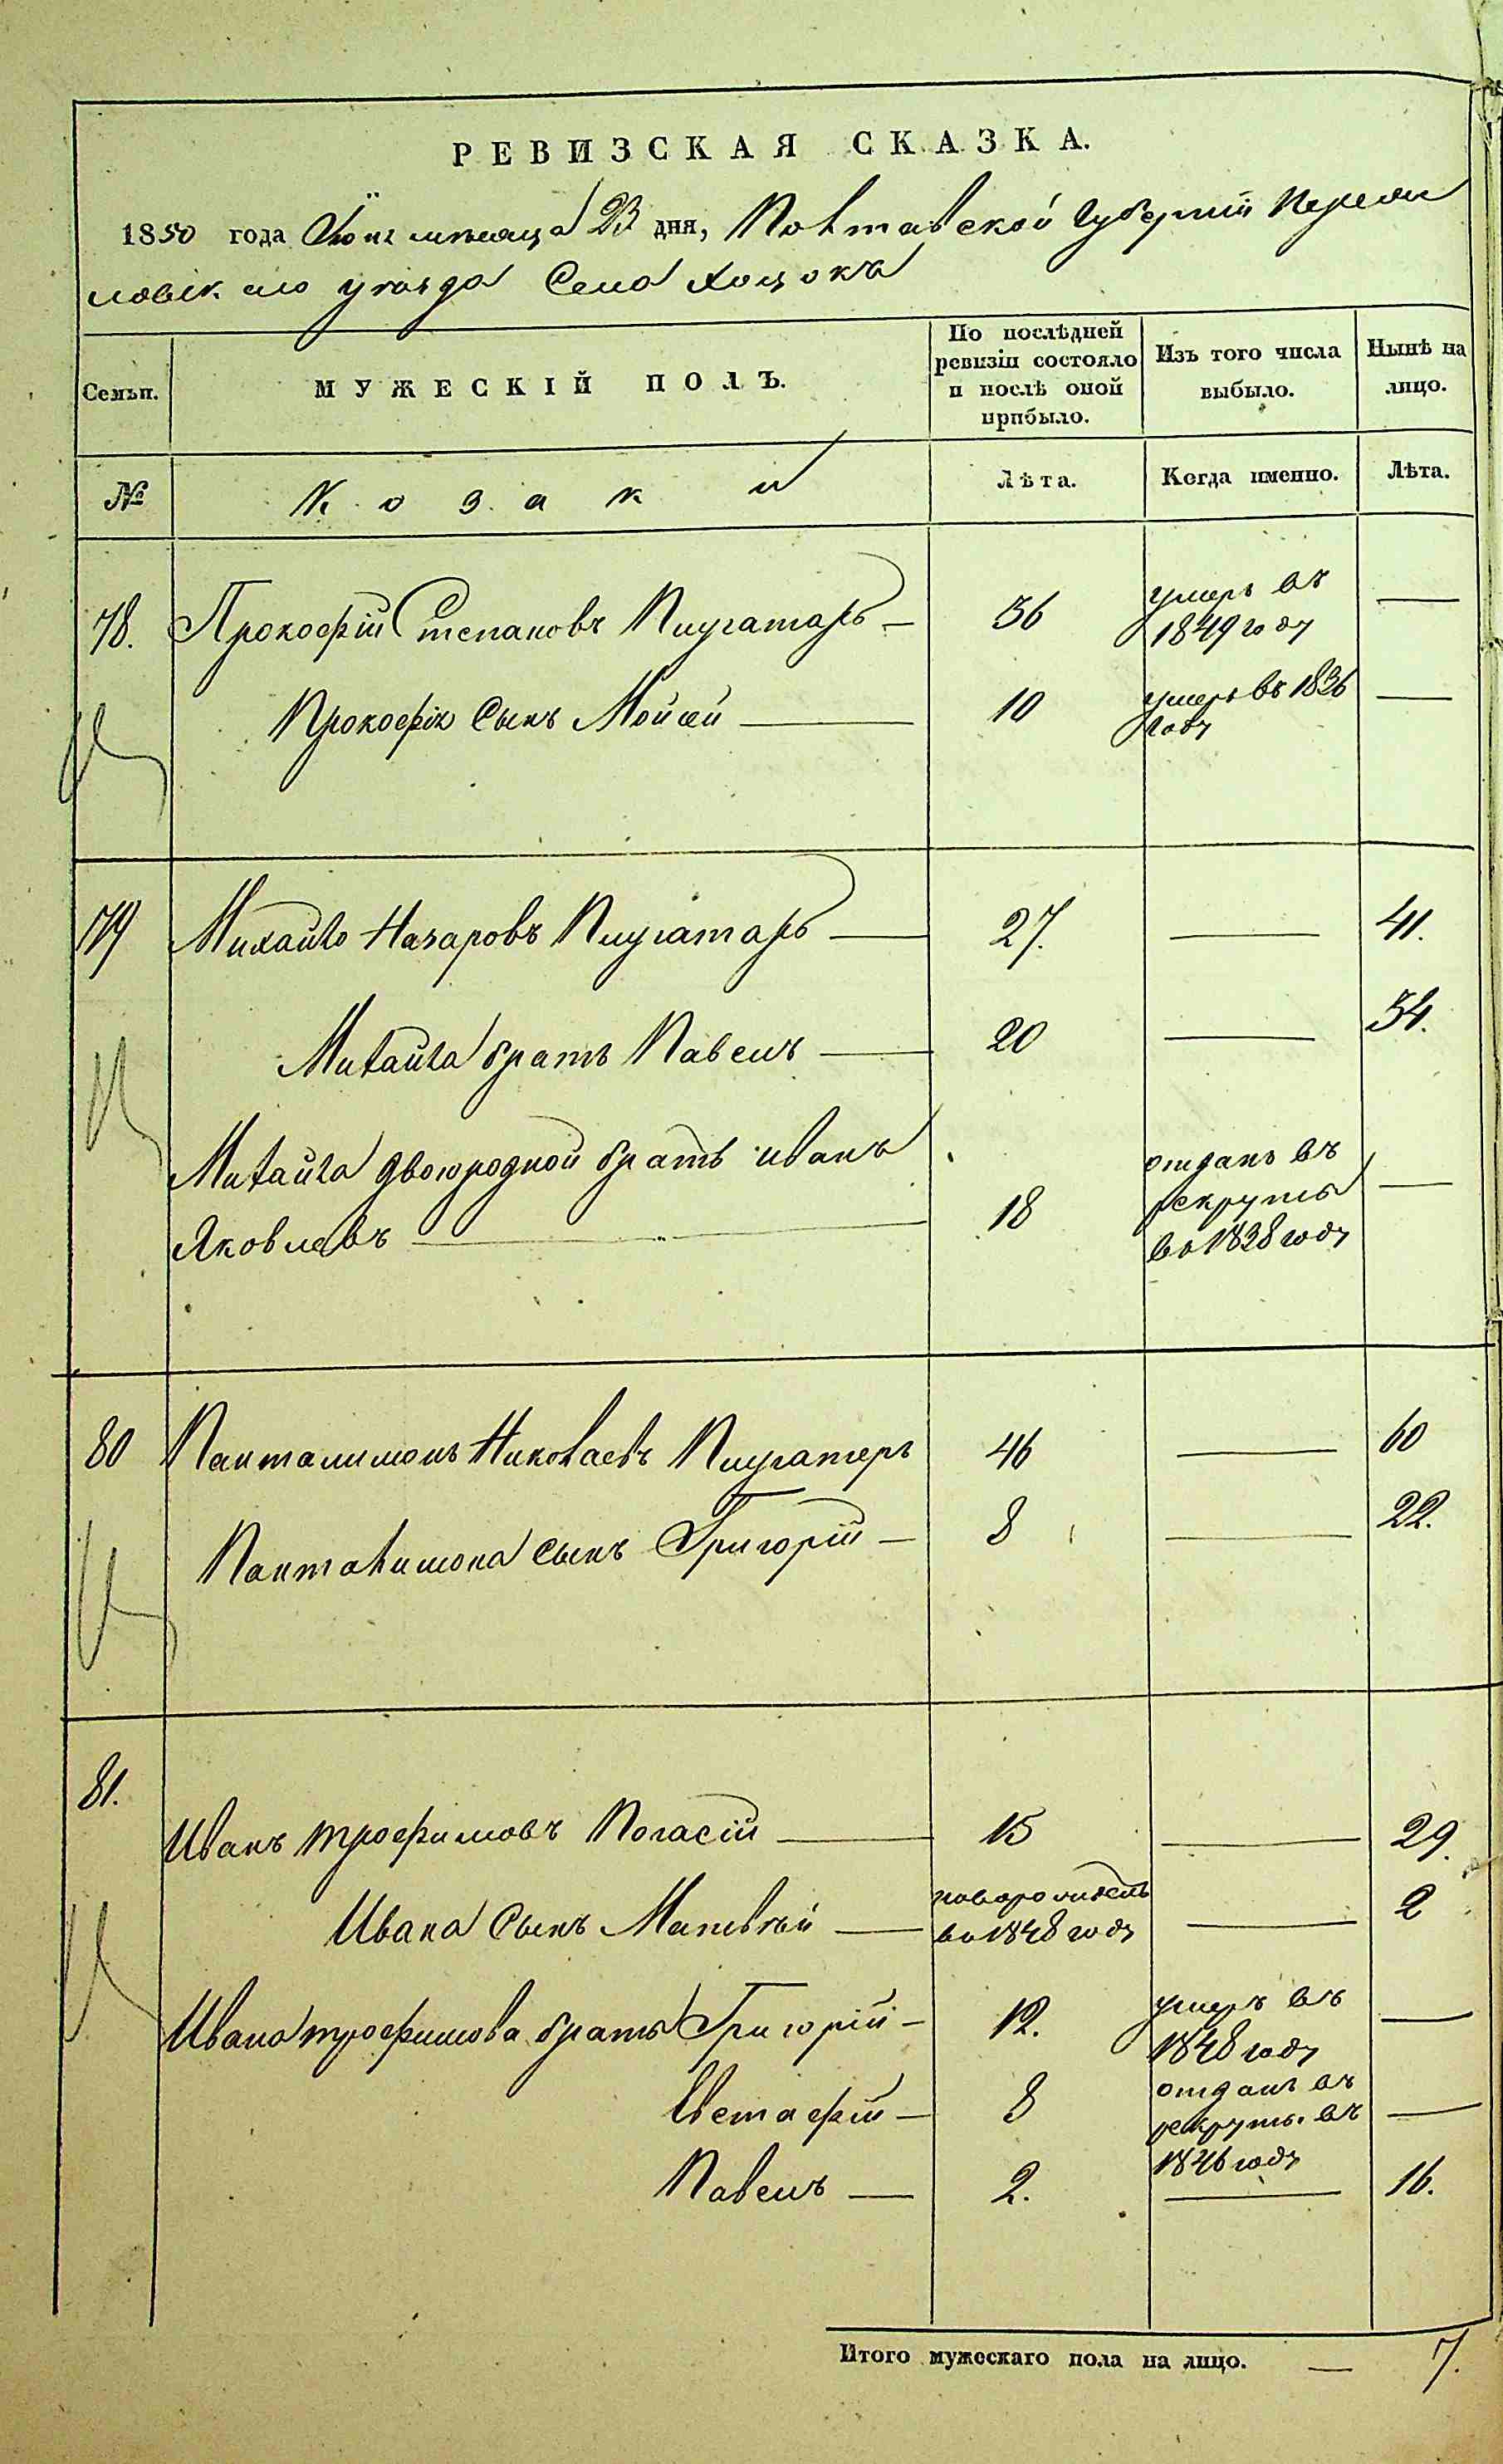 РЕВИЗСКАЯ СКАЗКА.
1850 года Іюня месяца 23 дня, Полтавской Губерніи Переяс
ловскаго уезда Села Хоцокъ
Семьи.
МУЖЕСКІЙ ПОЛЪ.
По послѣдней ревизіи состояло и послѣ оной прибыло.
Изъ того числа выбыло.
Нынѣ на лицо.
№
Козаки
Лѣта.
Когда именно.
Лѣта.
78. Прокофій Степановъ — 56 умеръ въ —
1849 году
Прокофія Сынъ Мойсей — 10 умеръ въ 1836 —
году
79 Михайло Назаровъ — 27. — 41.
Михайла братъ Павелъ — 20 — 34.
Михайла двоюродной братъ иванъ
Яковлевъ — 18 отданъ въ —
рекруты
во 1838 году
80 Панталимонъ Николаевъ 46 — 60
Панталимона Сынъ Григорій — 8 — 22.
81.
Иванъ трофимовъ Погасій — 15 — 29.
Ивана Сынъ Матвѣй — новорожденъ — 2
во 1848 году
Ивана трофимова братья Григорій — 12. умеръ въ —
1848 году
Евстафій — 8 отданъ въ —
рекруты въ
1846 году
Павелъ — 2. — 16.
Итого мужескаго пола на лицо. — 7.